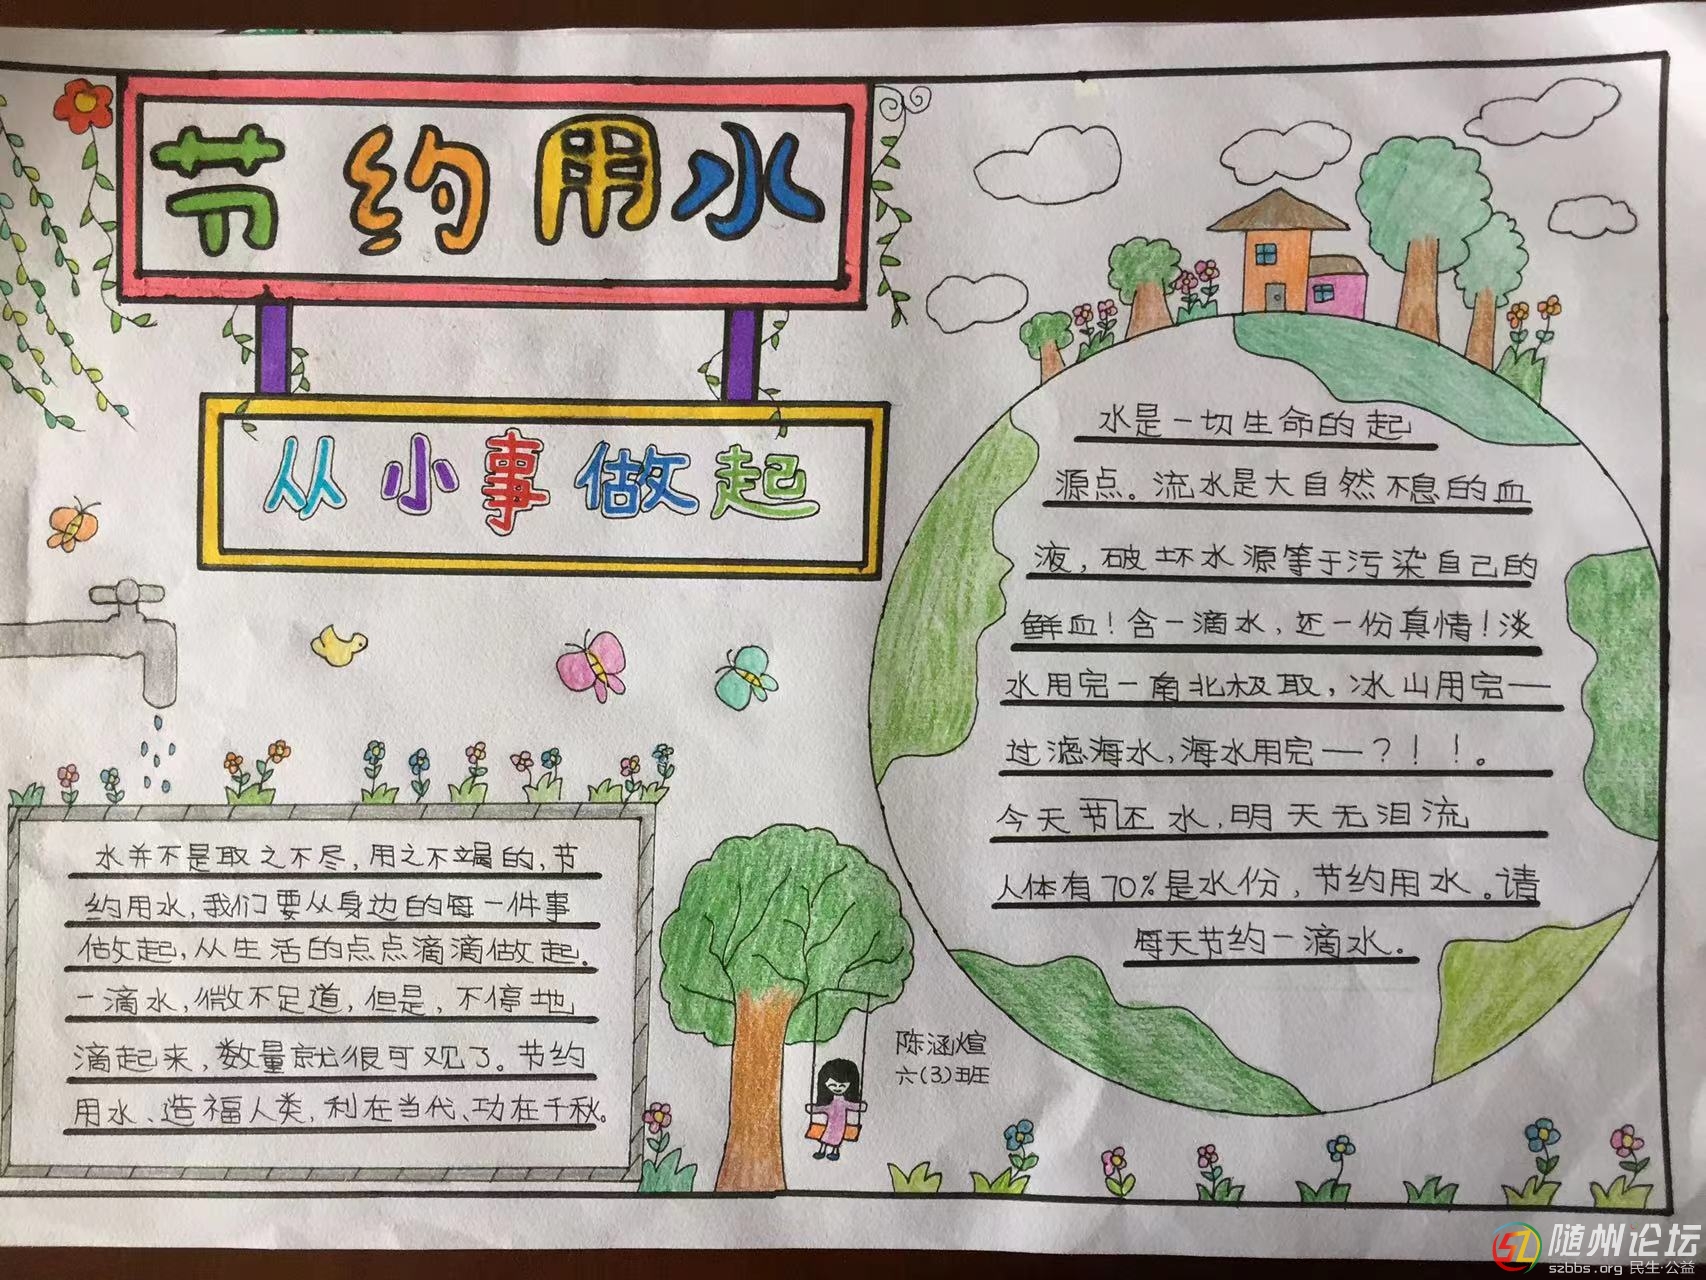 节约用水
从小事做起
水是一切生命的起
源点。流水是大自然不息的血
液,破坏水源等于污染自己的
鲜血!含一滴水,还一份真情!淡
水用完一南北极取,冰山用完一
过滤海水,海水用完一?!!。
今天节还水,明天无泪流
人体有70%是水份,节约用水。请
每天节约一滴水。
水并不是取之不尽,用之不竭的,节
约用水,我们要从身边的每一件事
做起,从生活的点点滴滴做起.
一滴水,微不足道,但是,不停地
滴起来,数量就很可观了。节约
用水、造福人类,利在当代、功在千秋。
陈涵煊
六(3)班
随州论坛
szbbs.org 民生·公益